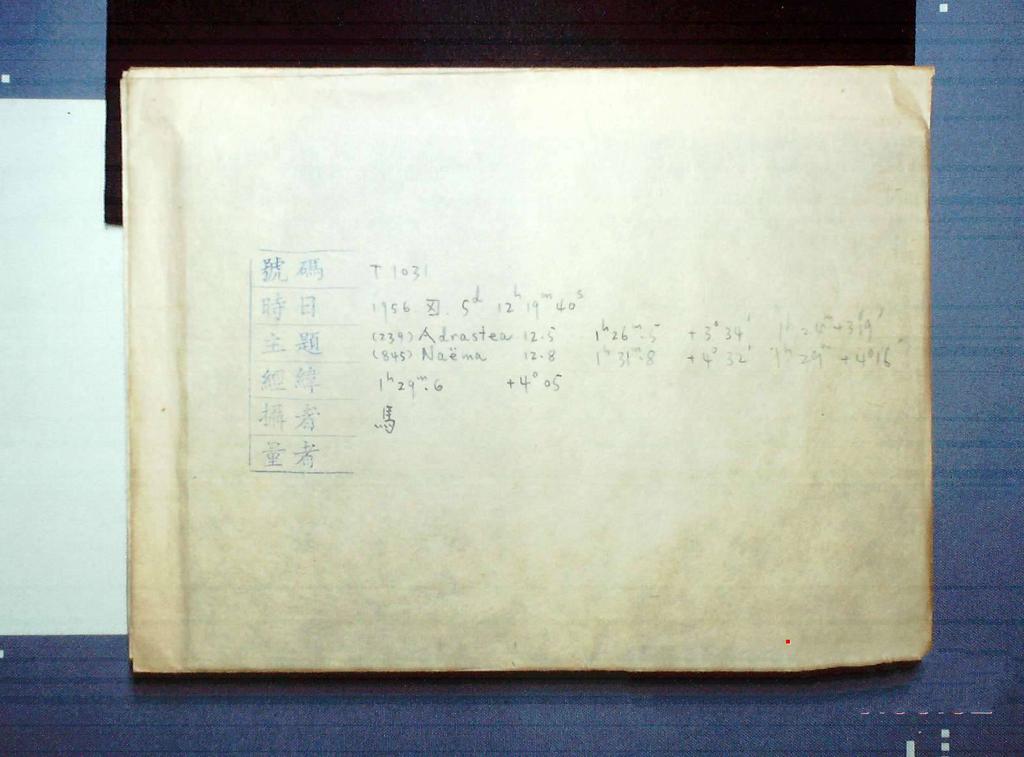 號碼 T 1031
時日 1956 5d 12h 19m 40s
主題 (239) Adrastea 12.5 1h26m.5 +3°34' 1h24m+3°19'
(845) Naëma 12.8 1h31m.8 +4°32' 1h29m +4°16'
經緯 1h29m.6 +4°05
攝者 馬
量者